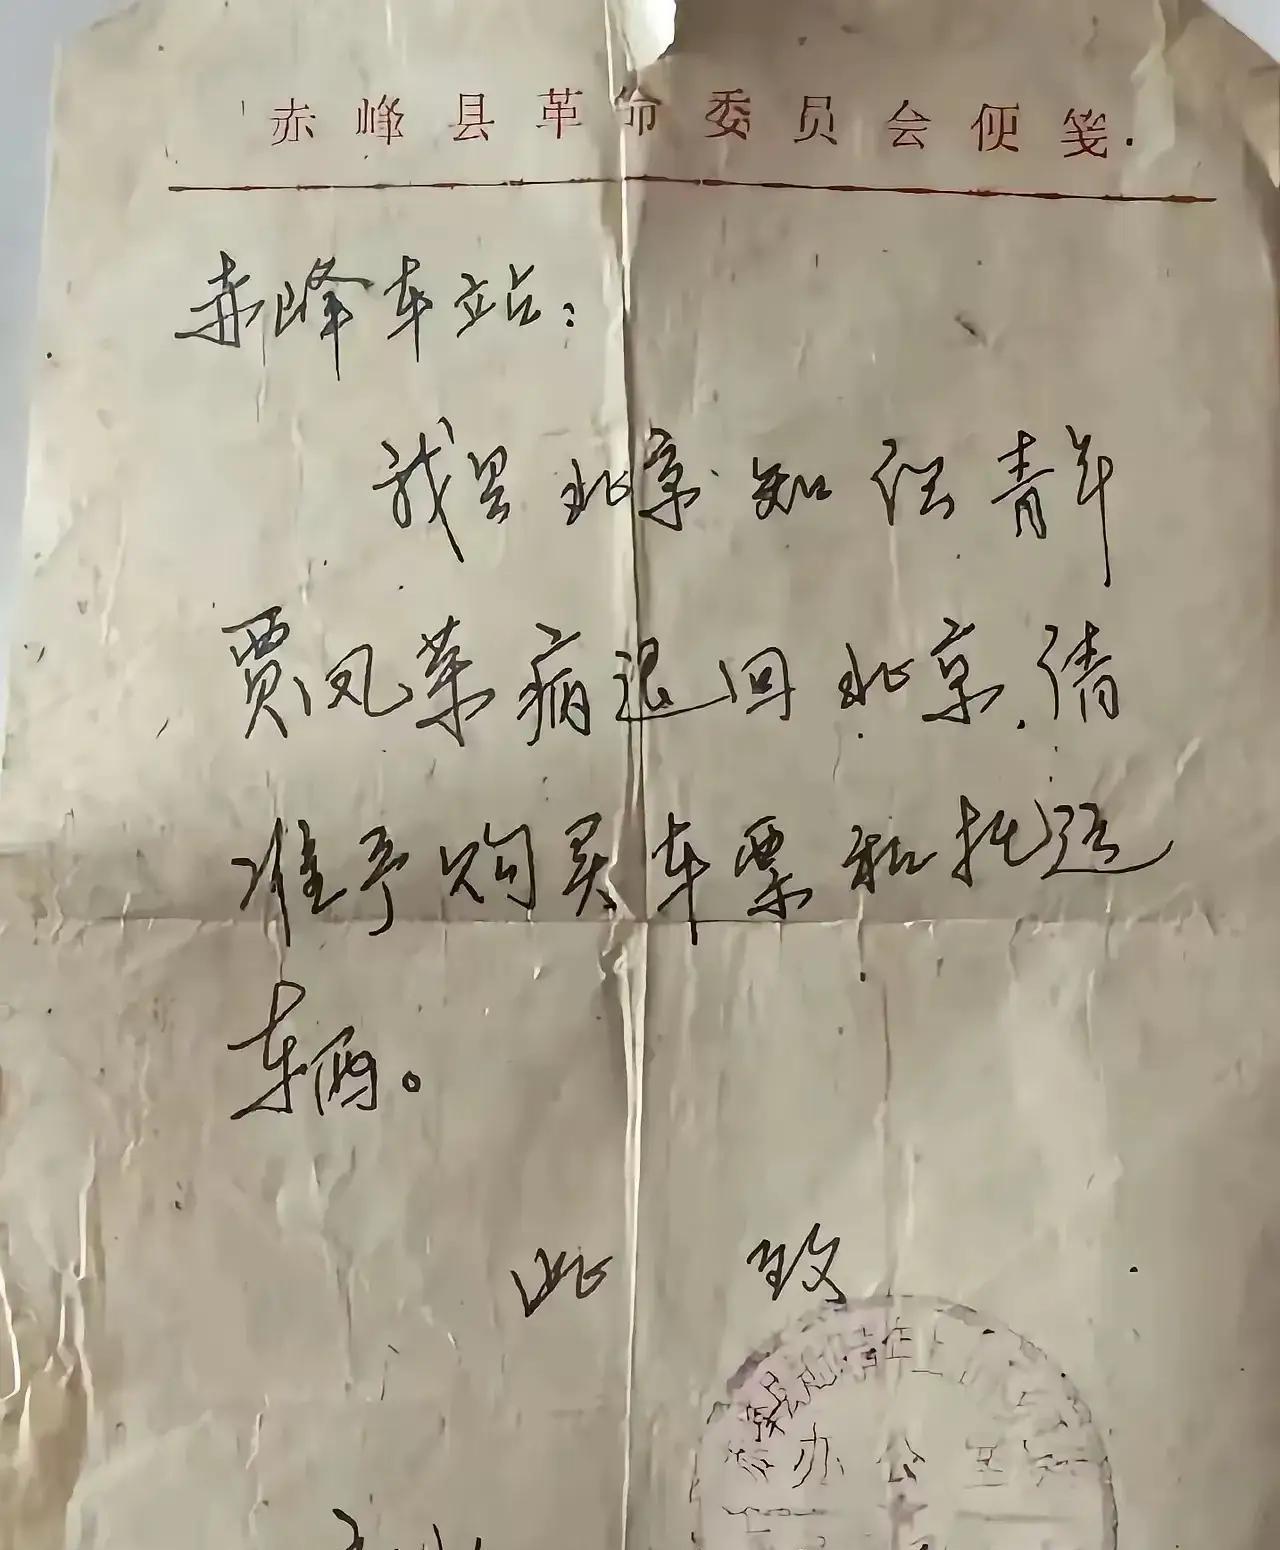 赤峰县革命委员会便笺.
赤峰车站：
我县北京知识青年
贾凤荣病退回北京.请
准予购买车票和托运
车辆。
此致
办公室